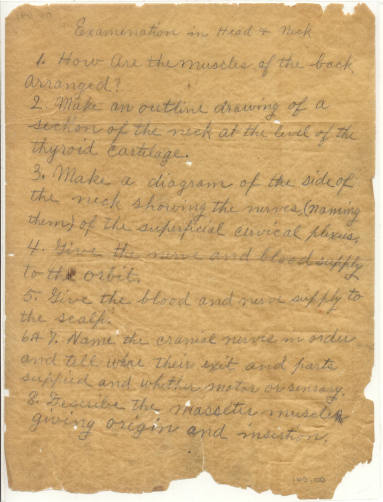 Examination in Head & Neck
1. How are the muscles of the back
arranged?
2. Make an outline drawing of a
section of the neck at the level of the
thyroid cartilage.
3. Make a diagram of the side of
the neck showing the nerves, (naming
them) of the superficial cervical plexus.
4. Give the nerve and blood supply
to the orbit.
5. Give the blood and nerve supply to
the scalp.
6A 7. Name the cranial nerves in order
and tell were their exit and parts
supplied and whether motor or sensory.
8. Describe the masseter muscle
giving origin and insertion.